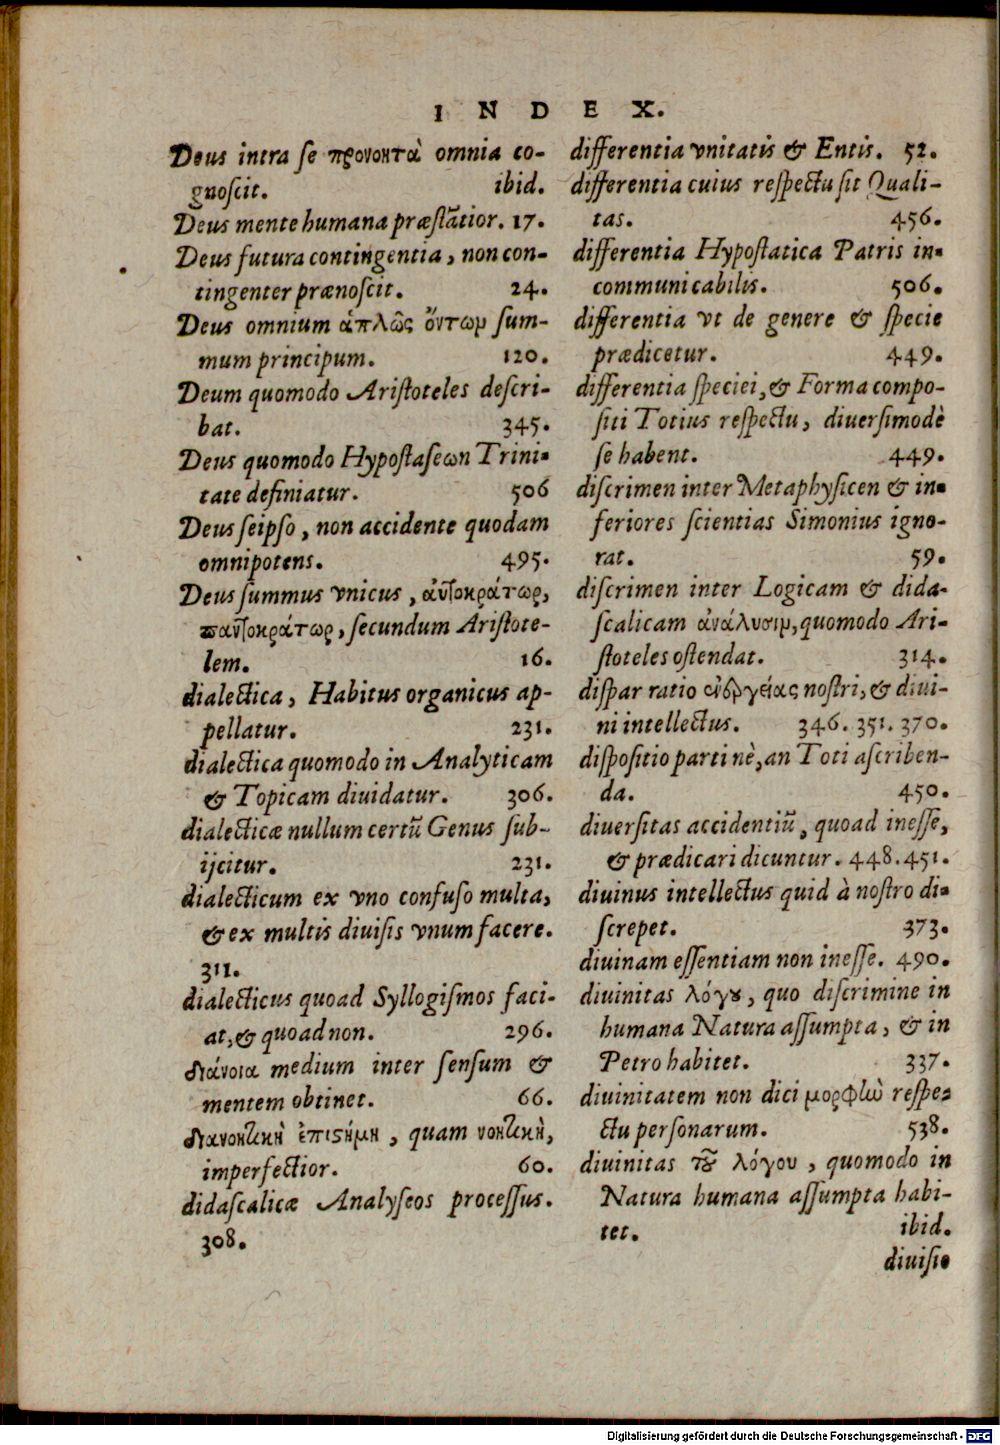 INDEX.
Deus intra se προνοητὰ omnia co-
gnoscit. ibid.
Deus mente humana præstãtior. 17.
Deus futura contingentia, non con-
tingenter prænoscit. 24.
Deus omnium ἁπλῶς ὄντωμ sum-
mum principum. 120.
Deum quomodo Aristoteles descri-
bat. 345.
Deus quomodo Hypostaseωn Trini-
tate definiatur. 506
Deus seipso, non accidente quodam
omnipotens. 495.
Deus summus vnicus, ἀυτοκράτωρ,
παντοκράτωρ, secundum Aristote-
lem. 16.
dialectica, Habitus organicus ap-
pellatur. 231.
dialectica quomodo in Analyticam
& Topicam diuidatur. 306.
dialecticæ nullum certũ Genus sub-
ijcitur. 231.
dialecticum ex vno confuso multa,
& ex multis diuisis vnum facere.
311.
dialecticus quoad Syllogismos faci-
at, & quoad non. 296.
διάνοια medium inter sensum &
mentem obtinet. 66.
διανοητικὴ ἐπιστήμη, quam νοητικὴ,
imperfectior. 60.
didascalicæ Analyseos processus.
308.
differentia vnitatis & Entis. 52.
differentia cuius respectu sit Quali-
tas. 456.
differentia Hypostatica Patris in-
communicabilis. 506.
differentia vt de genere & specie
prædicetur. 449.
differentia speciei, & Forma compo-
siti Totius respectu, diuersimodè
se habent. 449.
discrimen inter Metaphysicen & in-
feriores scientias Simonius igno-
rat. 59.
discrimen inter Logicam & dida-
scalicam ἀνάλυσιμ, quomodo Ari-
stoteles ostendat. 314.
dispar ratio ἐνεργείας nostri, & diui-
ni intellectus. 346. 351. 370.
dispositio parti nè, an Toti ascriben-
da. 450.
diuersitas accidentiũ, quoad inesse,
& prædicari dicuntur. 448. 451.
diuinus intellectus quid à nostro di-
screpet. 373.
diuinam essentiam non inesse. 490.
diuinitas λόγου, quo discrimine in
humana Natura assumpta, & in
Petro habitet. 337.
diuinitatem non dici μορφὼ respe-
ctu personarum. 538.
diuinitas τοῦ λόγου, quomodo in
Natura humana assumpta habi-
tet. ibid.
diuisio
Digitalisierung gefördert durch die Deutsche Forschungsgemeinschaft - DFG